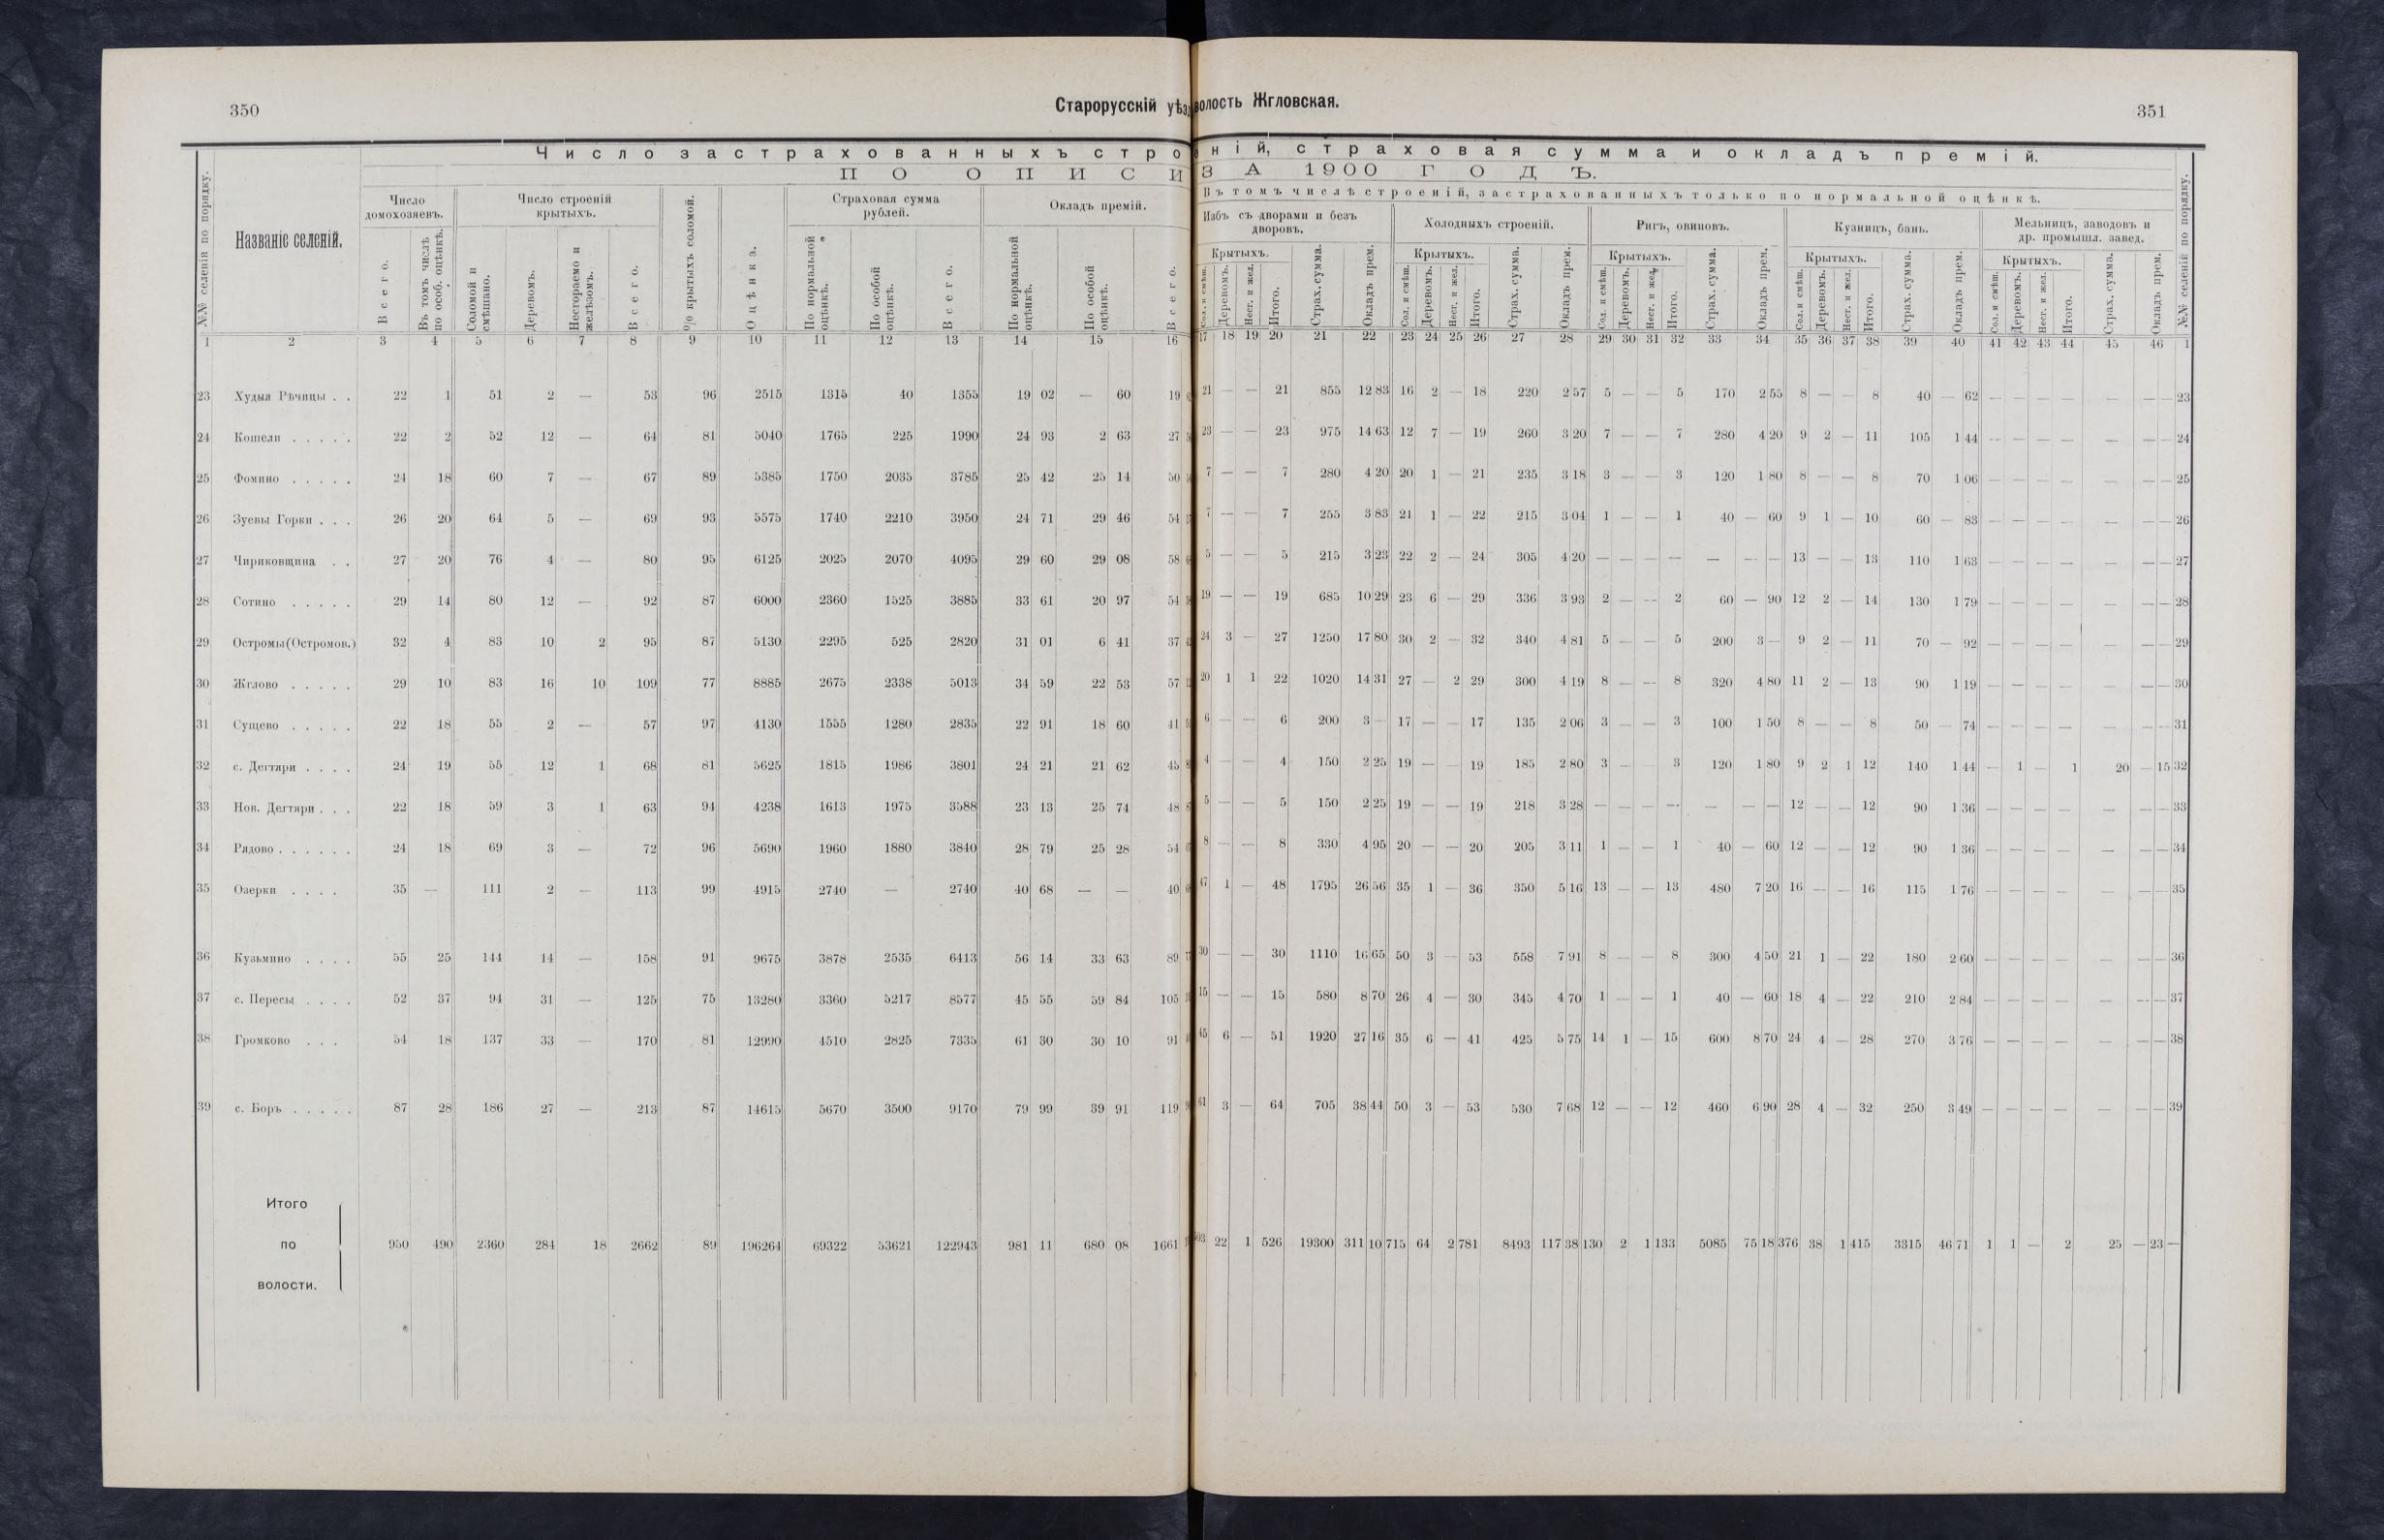 350
Старорусскій уѣз
волость Жгловская.
351
Число застрахованныхъ стро
ній, страховая сумма и окладъ премій.
ПО ОПИСИ
ЗА 1900 ГОДЪ.
Въ томъ числѣ строеній, застрахованныхъ только по нормальной оцѣнкѣ.
№№ селеній по порядку.
Названіе селеній.
Число домохозяевъ.
Всего.
Въ томъ числѣ по особ. оцѣнкѣ.
Число строеній крытыхъ.
Соломой и смѣшано.
Деревомъ.
Несгораемо и желѣзомъ.
Всего.
% крытыхъ соломой.
Оцѣнка.
Страховая сумма рублей.
По нормальной оцѣнкѣ.
По особой оцѣнкѣ.
Всего.
Окладъ премій.
По нормальной оцѣнкѣ.
По особой оцѣнкѣ.
Всего.
Избъ съ дворами и безъ дворовъ.
Крытыхъ.
Сол. и смѣш.
Деревомъ.
Несг. и жел.
Итого.
Страх. сумма.
Окладъ прем.
Холодныхъ строеній.
Крытыхъ.
Сол. и смѣш.
Деревомъ.
Несг. и жел.
Итого.
Страх. сумма.
Окладъ прем.
Ригъ, овиновъ.
Крытыхъ.
Сол. и смѣш.
Деревомъ.
Несг. и жел.
Итого.
Страх. сумма.
Окладъ прем.
Кузницъ, бань.
Крытыхъ.
Сол. и смѣш.
Деревомъ.
Несг. и жел.
Итого.
Страх. сумма.
Окладъ прем.
Мельницъ, заводовъ и др. промышл. завед.
Крытыхъ.
Сол. и смѣш.
Деревомъ.
Несг. и жел.
Итого.
Страх. сумма.
Окладъ прем.
№№ селеній по порядку.
1 2 3 4 5 6 7 8 9 10 11 12 13 14 15 16 17 18 19 20 21 22 23 24 25 26 27 28 29 30 31 32 33 34 35 36 37 38 39 40 41 42 43 44 45 46 1
23 Худыя Рѣчицы . . 22 1 51 2 — 53 96 2515 1315 40 1355 19 02 — 60 19 21 — — 21 855 12 83 16 2 — 18 220 2 57 5 — — 5 170 2 55 8 — — 8 40 — 62 — — — — — — — 23
24 Кошели . . . . . 22 2 52 12 — 64 81 5040 1765 225 1990 24 93 2 63 27 23 — — 23 975 14 63 12 7 — 19 260 3 20 7 — — 7 280 4 20 9 2 — 11 105 1 44 — — — — — — — 24
25 Фомино . . . . . 24 18 60 7 — 67 89 5385 1750 2035 3785 25 42 25 14 50 7 — — 7 280 4 20 20 1 — 21 235 3 18 3 — — 3 120 1 80 8 — — 8 70 1 06 — — — — — — — 25
26 Зуевы Горки . . . 26 20 64 5 — 69 93 5575 1740 2210 3950 24 71 29 46 54 7 — — 7 255 3 83 21 1 — 22 215 3 04 1 — — 1 40 — 60 9 1 — 10 60 — 83 — — — — — — — 26
27 Чириковщина . . 27 20 76 4 — 80 95 6125 2025 2070 4095 29 60 29 08 58 5 — — 5 215 3 23 22 2 — 24 305 4 20 — — — — — — — 13 — — 13 110 1 63 — — — — — — — 27
28 Сотино . . . . . 29 14 80 12 — 92 87 6000 2360 1525 3885 33 61 20 97 54 19 — — 19 685 10 29 23 6 — 29 336 3 93 2 — — 2 60 — 90 12 2 — 14 130 1 79 — — — — — — — 28
29 Остромы (Остромов.) 32 4 83 10 2 95 87 5130 2295 525 2820 31 01 6 41 37 24 3 — 27 1250 17 80 30 2 — 32 340 4 81 5 — — 5 200 3 — 9 2 — 11 70 — 92 — — — — — — — 29
30 Жглово . . . . . 29 10 83 16 10 109 77 8885 2675 2338 5013 34 59 22 53 57 20 1 1 22 1020 14 31 27 — 2 29 300 4 19 8 — — 8 320 4 80 11 2 — 13 90 1 19 — — — — — — — 30
31 Сущево . . . . . 22 18 55 2 — 57 97 4130 1555 1280 2835 22 91 18 60 41 6 — — 6 200 3 — 17 — — 17 135 2 06 3 — — 3 100 1 50 8 — — 8 50 — 74 — — — — — — — 31
32 с. Дегтяри . . . . 24 19 55 12 1 68 81 5625 1815 1986 3801 24 21 21 62 45 4 — — 4 150 2 25 19 — — 19 185 2 80 3 — — 3 120 1 80 9 2 1 12 140 1 44 — 1 — 1 20 — 15 32
33 Нов. Дегтяри . . . 22 18 59 3 1 63 94 4238 1613 1975 3588 23 13 25 74 48 5 — — 5 150 2 25 19 — — 19 218 3 28 — — — — — — — 12 — — 12 90 1 36 — — — — — — — 33
34 Рядово . . . . . . 24 18 69 3 — 72 96 5690 1960 1880 3840 28 79 25 28 54 8 — — 8 330 4 95 20 — — 20 205 3 11 1 — — 1 40 — 60 12 — — 12 90 1 36 — — — — — — — 34
35 Озерки . . . . 35 — 111 2 — 113 99 4915 2740 — 2740 40 68 — — 40 47 1 — 48 1795 26 56 35 1 — 36 350 5 16 13 — — 13 480 7 20 16 — — 16 115 1 76 — — — — — — — 35
36 Кузьмино . . . . 55 25 144 14 — 158 91 9675 3878 2535 6413 56 14 33 63 89 30 — — 30 1110 16 65 50 3 — 53 558 7 91 8 — — 8 300 4 50 21 1 — 22 180 2 60 — — — — — — — 36
37 с. Пересы . . . . 52 37 94 31 — 125 75 13280 3360 5217 8577 45 55 59 84 105 15 — — 15 580 8 70 26 4 — 30 345 4 70 1 — — 1 40 — 60 18 4 — 22 210 2 84 — — — — — — — 37
38 Громково . . . 54 18 137 33 — 170 81 12990 4510 2825 7335 61 30 30 10 91 45 6 — 51 1920 27 16 35 6 — 41 425 5 75 14 1 — 15 600 8 70 24 4 — 28 270 3 76 — — — — — — — 38
39 с. Боръ . . . . . 87 28 186 27 — 213 87 14615 5670 3500 9170 79 99 39 91 119 61 3 — 64 705 38 44 50 3 — 53 530 7 68 12 — — 12 460 6 90 28 4 — 32 250 3 49 — — — — — — — 39
Итого
по 950 490 2360 284 18 2662 89 196264 69322 53621 122943 981 11 680 08 1661 22 1 526 19300 311 10 715 64 2 781 8493 117 38 130 2 1 133 5085 75 18 376 38 1 415 3315 46 71 1 1 — 2 25 — 23 —
волости.